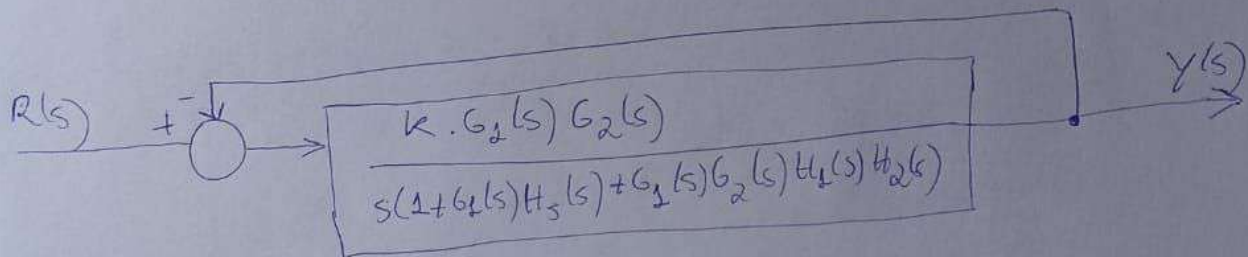 R(s) + - Y(s)
K . G₁(s) G₂(s)
s(1+G₁(s)H₅(s)+G₁(s)G₂(s)H₁(s)H₂(s)